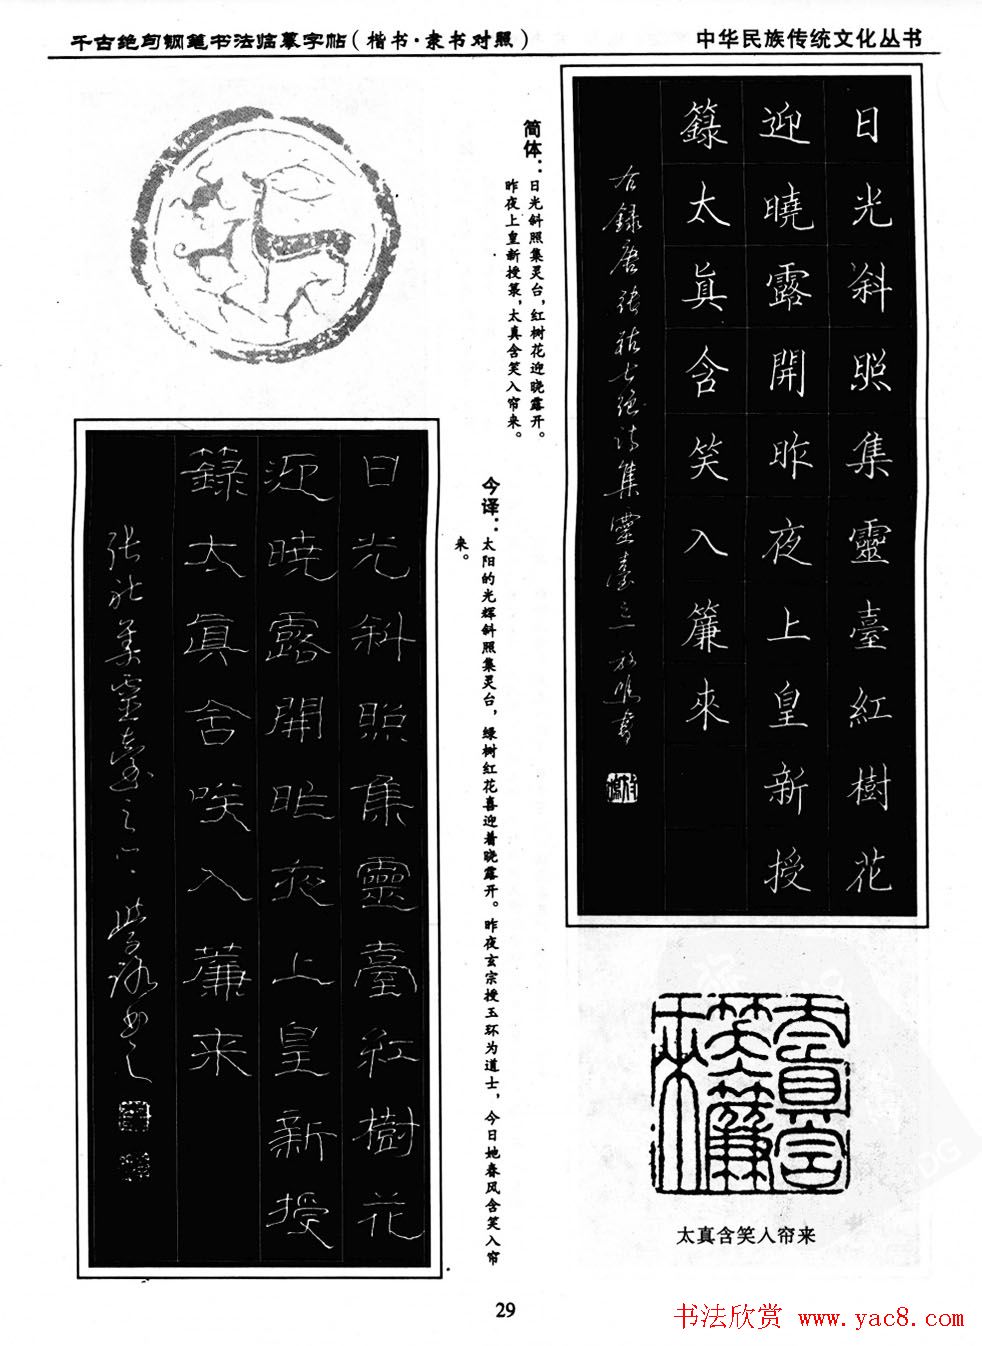 千古绝句钢笔书法临摹字帖(楷书·隶书对照)
中华民族传统文化丛书
日光斜照集靈臺紅樹花
迎曉露開昨夜上皇新授
籙太真含笑入簾來
右錄唐張祜七绝诗集靈臺之一
简体：日光斜照集灵台，红树花迎晓露开。
昨夜上皇新授箓，太真含笑入帘来。
今译：太阳的光辉斜照集灵台，绿树红花喜迎着晓露开。昨夜玄宗授玉环为道士，今日她春风含笑入帘
来。
日光斜照集靈臺紅樹花
迎曉露開昨夜上皇新授
籙太真含咲入簾来
张祜集靈臺之一
太真含笑簾来
太真含笑人帘来
29
书法欣赏 www.yac8.com